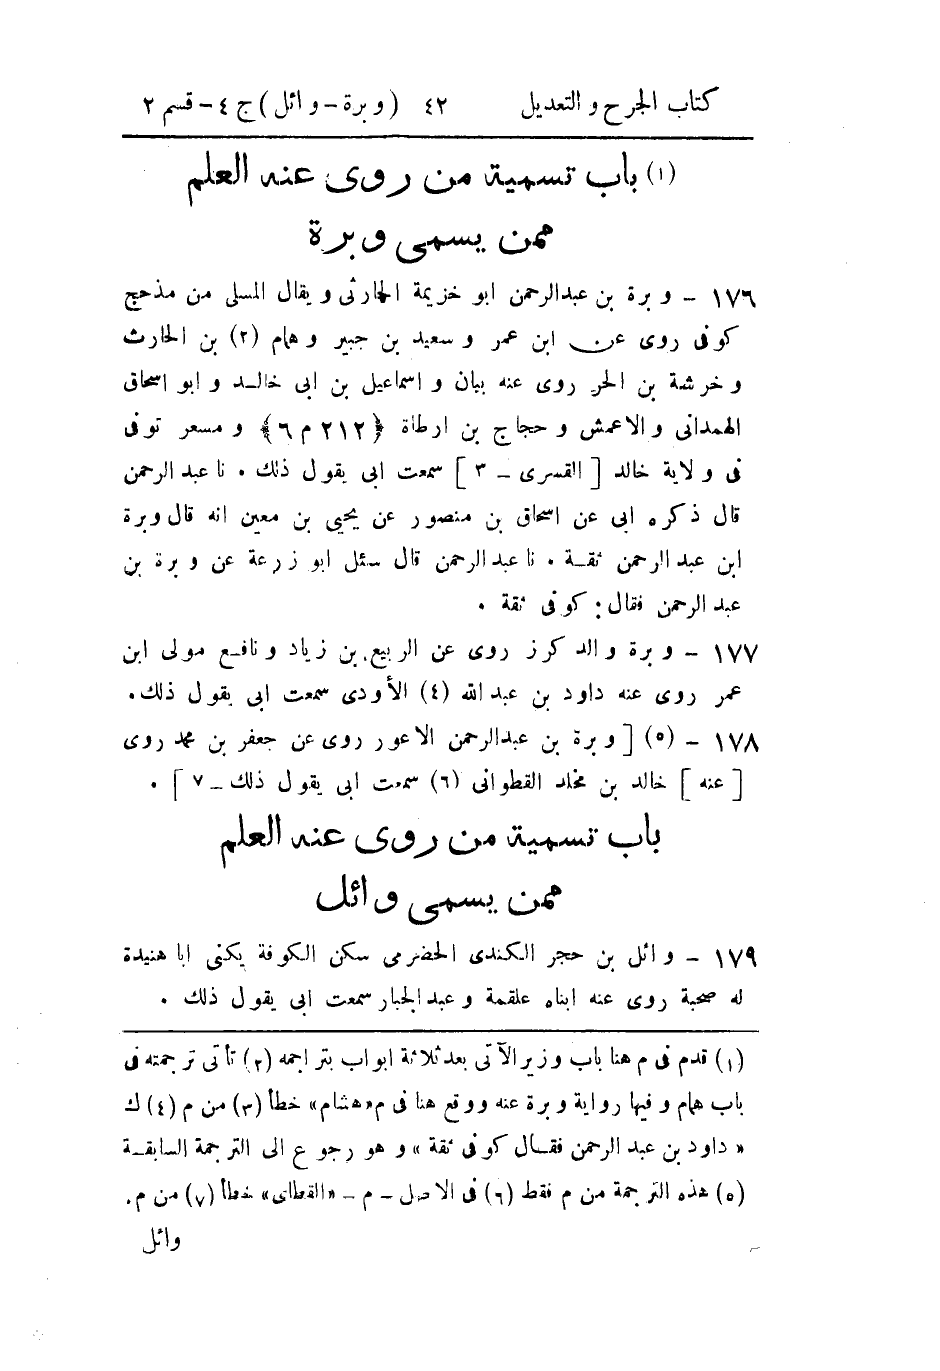 كتاب الجرح والتعديل ٤٢ (وبرة - وائل) ج ٤ - قسم ٢
(١) باب تسمية من روى عنه العلم
ممن يسمى وبرة
١٧٦ - وبرة بن عبدالرحمن ابو خزيمة الحارثى ويقال المسلى من مذحج
كوفى روى عن ابن عمر وسعيد بن جبير وهام (٢) بن الحارث
وخرشة بن الحر روى عنه بيان واسماعيل بن ابى خالد وابو اسحاق
الهمدانى والاعمش وحجاج بن ارطاة ﴿٢١٢ م ٦﴾ ومسعر توفى
فى ولاية خالد [القسرى - ٣] سمعت ابى يقول ذلك . نا عبد الرحمن
قال ذكره ابى عن اسحاق بن منصور عن يحيى بن معين انه قال وبرة
ابن عبد الرحمن ثقة . نا عبد الرحمن قال سئل ابو زرعة عن وبرة بن
عبد الرحمن فقال : كوفى ثقة .
١٧٧ - وبرة والد كرز روى عن الربيع بن زياد ونافع مولى ابن
عمر روى عنه داود بن عبد الله (٤) الأودى سمعت ابى يقول ذلك .
١٧٨ - (٥) [وبرة بن عبدالرحمن الاعور روى عن جعفر بن محمد روى
[عنه] خالد بن مخلد القطوانى (٦) سمعت ابى يقول ذلك - ٧] .
باب تسمية من روى عنه العلم
ممن يسمى وائل
١٧٩ - وائل بن حجر الكندى الحضرمى سكن الكوفة يكنى ابا هنيدة
له صحبة روى عنه ابناه علقمة وعبد الجبار سمعت ابى يقول ذلك .
(١) قدم فى م هنا باب وزير الآتى بعد ثلاثة ابواب بتراجمه (٢) تأتى ترجمته فى
باب هام وفيها رواية وبرة عنه ووقع هنا فى م «هشام» خطأ (٣) من م (٤) ك
« داود بن عبد الرحمن فقال كوفى ثقة » وهو رجوع الى الترجمة السابقة
(٥) هذه الترجمة من م فقط (٦) فى الاصل - م - «القطاى» خطأ (٧) من م .
وائل